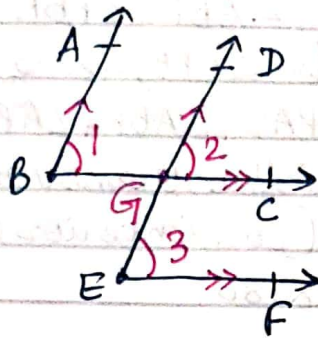 A
D
1
2
B
G
C
3
E
F